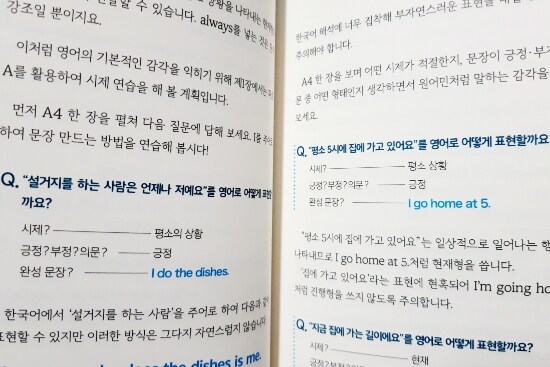 강조일 뿐이지요. always를 넣는 것은
이처럼 영어의 기본적인 감각을 익히기 위해 제1장에서는
A를 활용하여 시제 연습을 해 볼 계획입니다.
먼저 A4 한 장을 펼쳐 다음 질문에 답해 보세요. I를
하여 문장 만드는 방법을 연습해 봅시다!
Q. “설거지를 하는 사람은 언제나 저예요”를 영어로 어떻게
까요?
시제? 평소의 상황
긍정?부정?의문? 긍정
완성 문장? I do the dishes.
한국어에서 ‘설거지를 하는 사람’을 주어로 하여 다음과
표현할 수 있지만 이러한 방식은 그다지 자연스럽지 않습니다
does the dishes is me.
한국어 해석에 너무 집착해 부자연스러운 표현을
주의해야 합니다.
A4 한 장을 보며 어떤 시제가 적절한지, 문장이 긍정·부
문 중 어떤 형태인지 생각하면서 원어민처럼 말하는 감각을
보세요.
Q. “평소 5시에 집에 가고 있어요”를 영어로 어떻게 표현할까요?
시제? 평소 상황
긍정?부정?의문? 긍정
완성 문장? I go home at 5.
“평소 5시에 집에 가고 있어요”는 일상적으로 일어나는
나타내므로 I go home at 5.처럼 현재형을 씁니다.
‘집에 가고 있어요’라는 표현에 현혹되어 I'm going
처럼 진행형을 쓰지 않도록 주의합니다.
Q. “지금 집에 가는 길이에요”를 영어로 어떻게 표현할까요?
시제? 현재
긍정?부정?의문?